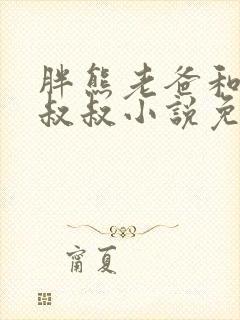 胖熊老爸和
叔叔小說免
甯夏